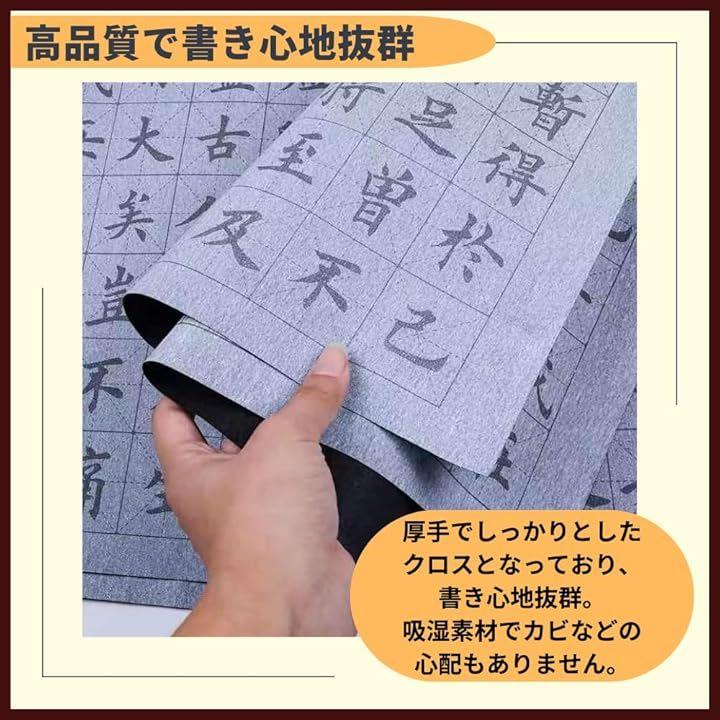 高品質で書き心地抜群
暫得於己
足曾不
至及
古人
大矣豈不痛
厚手でしっかりとした
クロスとなっており、
書き心地抜群。
吸湿素材でカビなどの
心配もありません。